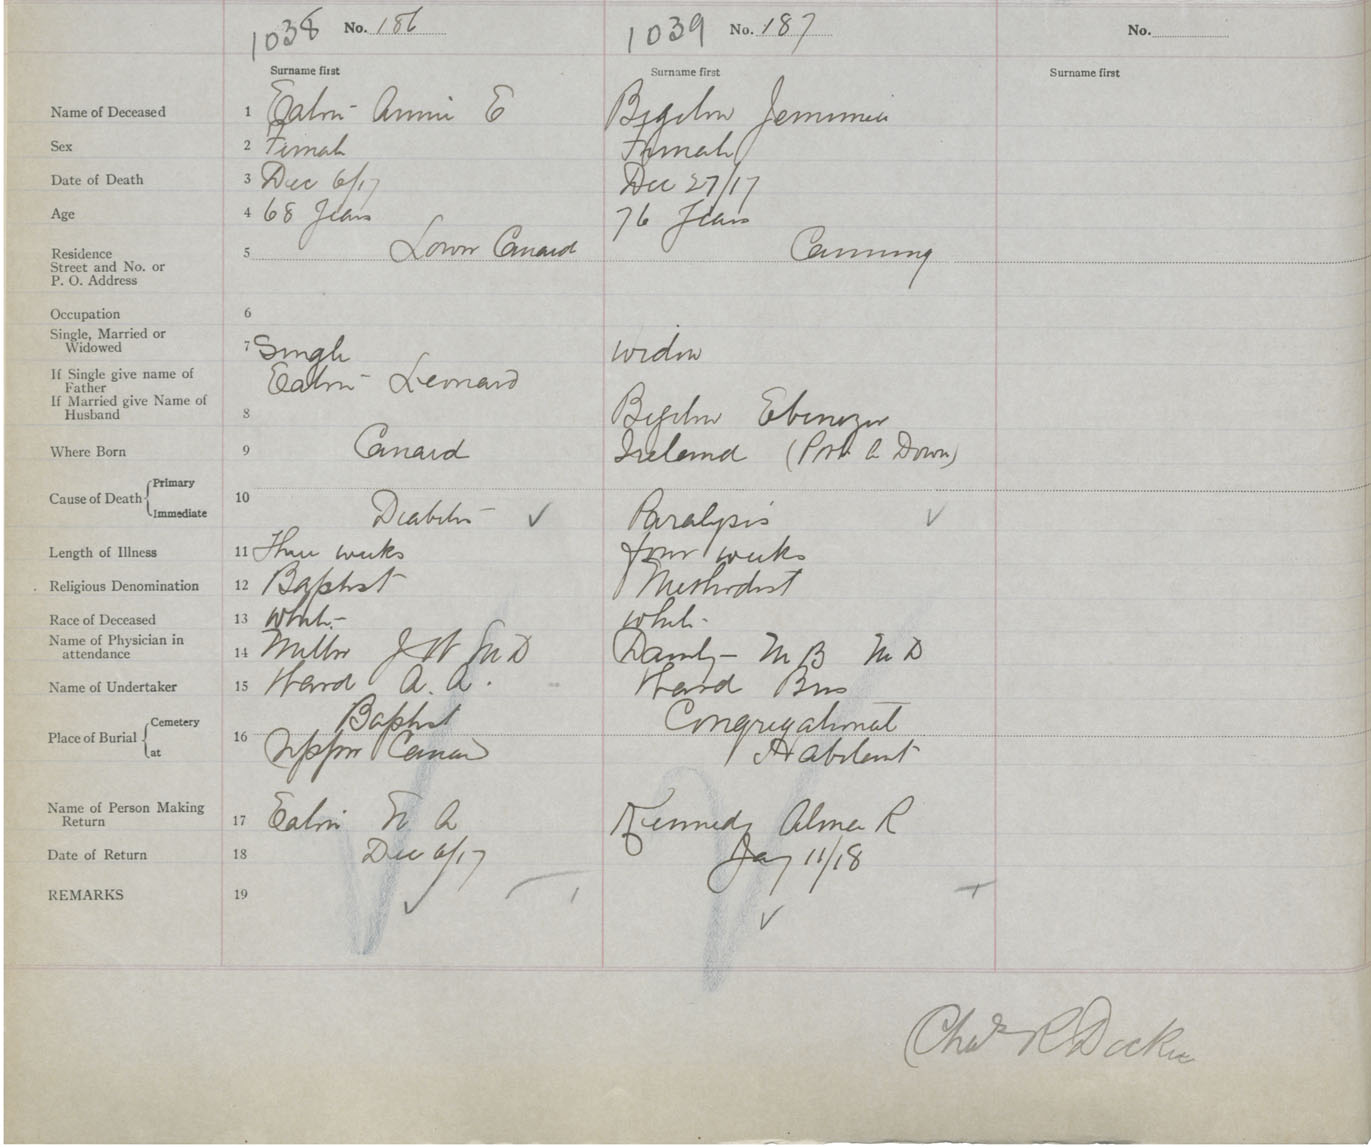 1038 No. 186 1039 No. 187 No.
Surname first Surname first Surname first
Name of Deceased 1 Eaton Annie E Bigelow Jemimia
Sex 2 Female Female
Date of Death 3 Dec 6/17 Dec 27/17
Age 4 68 Years 76 Years
Residence
Street and No. or
P. O. Address 5 Lower Canard Canning
Occupation 6
Single, Married or
Widowed 7 Single widow
If Single give name of
Father Eaton Leonard
If Married give Name of
Husband 8 Bigelow Ebenezer
Where Born 9 Canard Ireland (Port a Down)
Cause of Death Primary
10
Immediate Diabetes Paralysis
Length of Illness 11 Three weeks four weeks
Religious Denomination 12 Baptist Methodist
Race of Deceased 13 white white
Name of Physician in
attendance 14 Miller J W M D M B M D
Name of Undertaker 15 Ward A. A. Ward Bros
Place of Burial Cemetery Baptist Congregational
16
at Upper Canard Habitant
Name of Person Making
Return 17 Eaton A Kennedy Alma R
Date of Return 18 Dec 6/17 Jany 11/18
REMARKS 19
Chas R Dockie